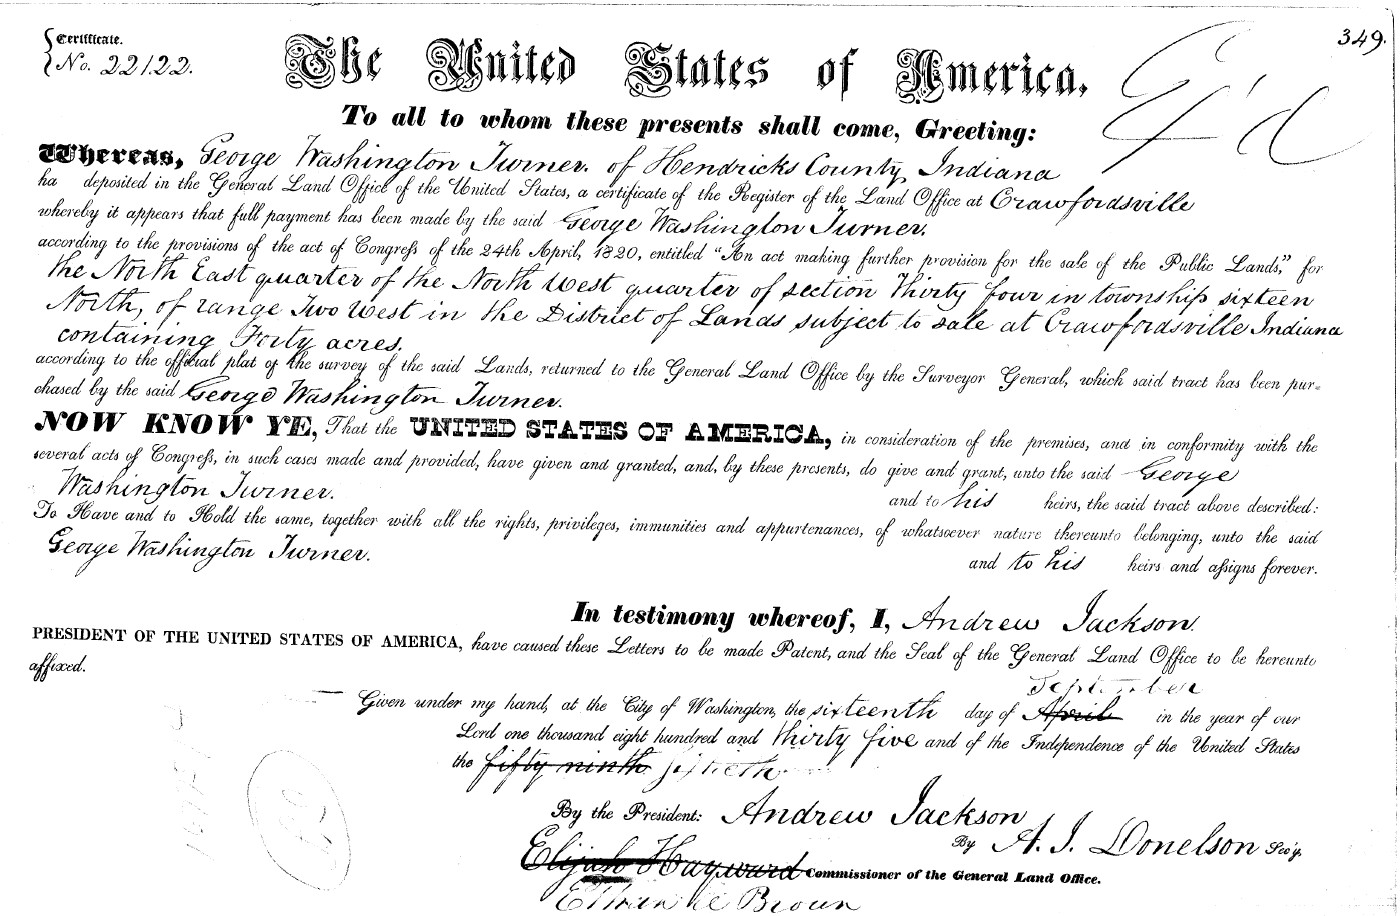 349.
Certificate.
No. 22122.
The United States of America,
To all to whom these presents shall come, Greeting:
Whereas, George Washington Turner. of Hendricks County, Indiana
ha deposited in the General Land Office of the United States, a certificate of the Register of the Land Office at Crawfordsville
whereby it appears that full payment has been made by the said George Washington Turner.
according to the provisions of the act of Congress of the 24th April, 1820, entitled "An act making further provision for the sale of the Public Lands," for
the North East quarter of the North West quarter of section Thirty four in township sixteen
North, of range Two West in the District of Lands subject to sale at Crawfordsville Indiana
containing Forty acres.
according to the official plat of the survey of the said Lands, returned to the General Land Office by the Surveyor General, which said tract has been pur-
chased by the said George Washington Turner.
NOW KNOW YE, That the UNITED STATES OF AMERICA, in consideration of the premises, and in conformity with the
several acts of Congress, in such cases made and provided, have given and granted, and, by these presents, do give and grant, unto the said George
Washington Turner. and to his heirs, the said tract above described:
To Have and to Hold the same, together with all the rights, privileges, immunities and appurtenances, of whatsoever nature thereunto belonging, unto the said
George Washington Turner. and to his heirs and assigns forever.
In testimony whereof, I, Andrew Jackson.
PRESIDENT OF THE UNITED STATES OF AMERICA, have caused these Letters to be made Patent, and the Seal of the General Land Office to be hereunto
affixed.
September
Given under my hand, at the City of Washington, the sixteenth day of April in the year of our
Lord one thousand eight hundred and thirty five and of the Independence of the United States
the fifty ninth sixtieth
By the President: Andrew Jackson
By A. J. Donelson Sec'y.
Elijah Hayward Commissioner of the General Land Office.
Brown